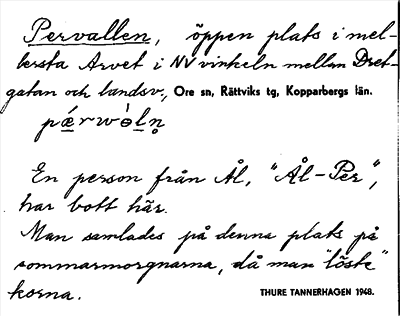 Pervallen, öppen plats i mel-
lersta Arvet i NV vinkeln mellan Dret-
gatan och landsv., Ore sn, Rättviks tg, Kopparbergs län.
pǽrwòln̥
En person från Ål, "Ål-Per",
har bott här.
Man samlades på denna plats på
sommarmorgnarna, då man "löste"
korna.
THURE TANNERHAGEN 1948.